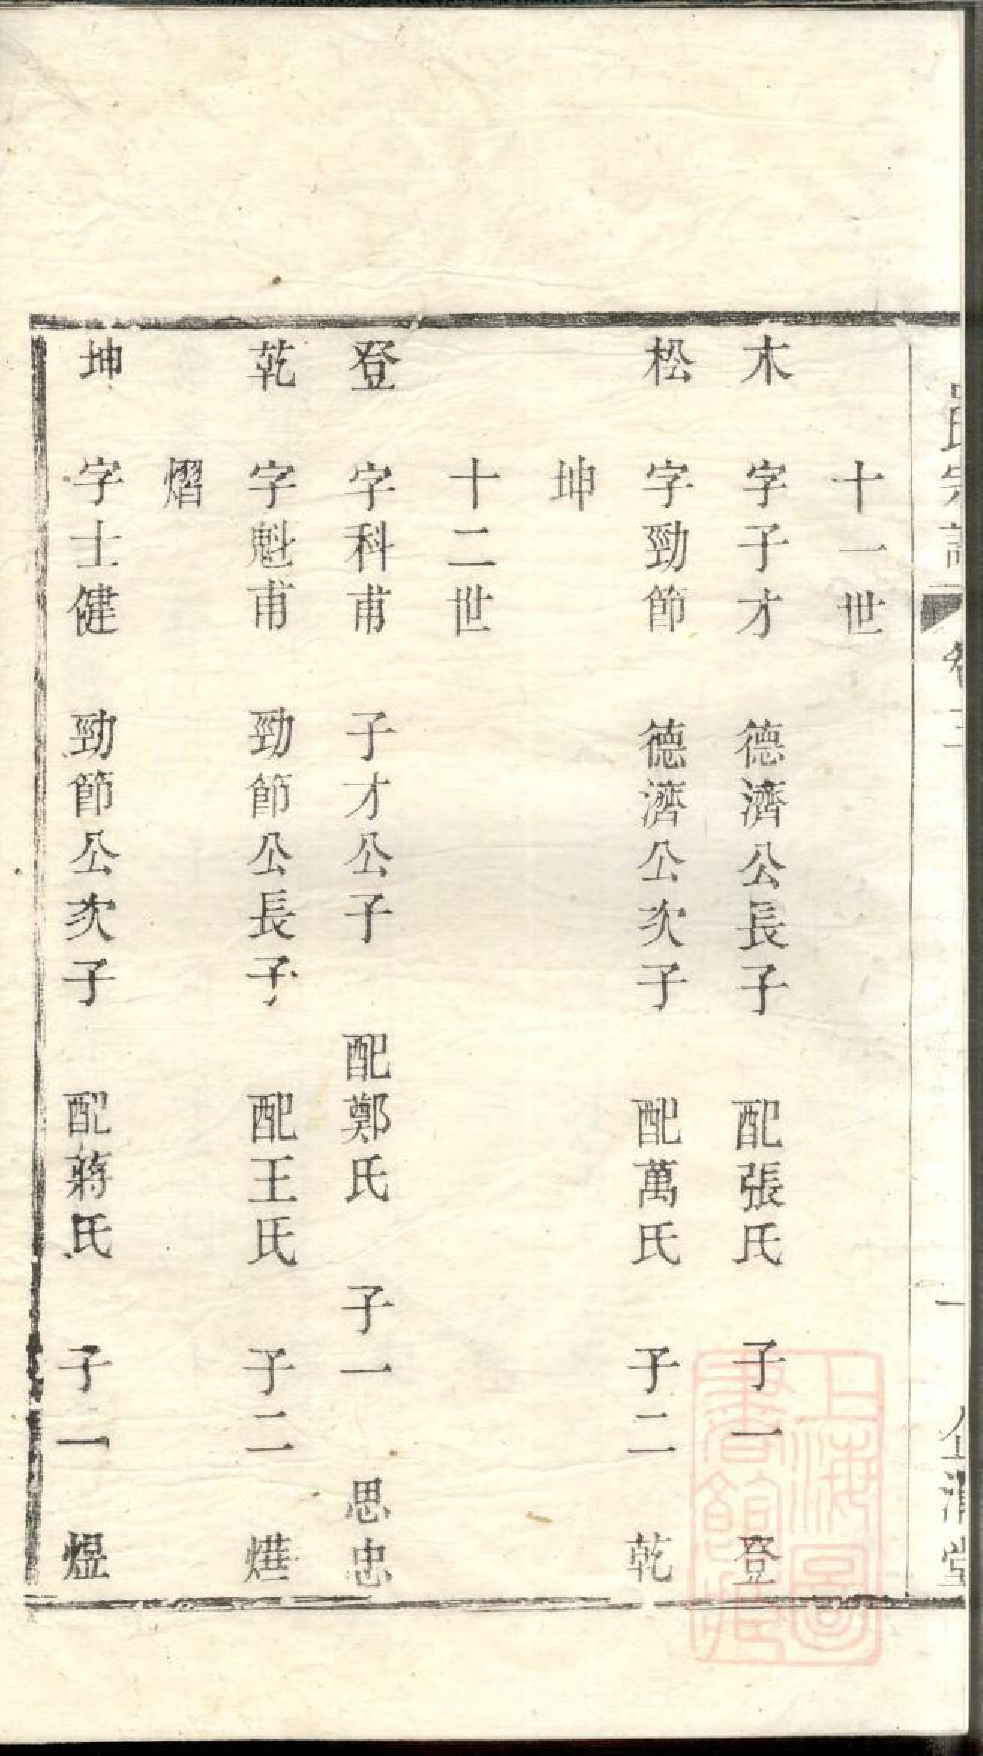 十一世
木 字子才 德濟公長子 配張氏 子一 登
松 字勁節 德濟公次子 配萬氏 子二 乾
坤
十二世
登 字科甫 子才公子 配鄭氏 子一 思忠
乾 字魁甫 勁節公長子 配王氏 子二 㷸
熠
坤 字士健 勁節公次子 配蔣氏 子一 煜
上海圖書館藏